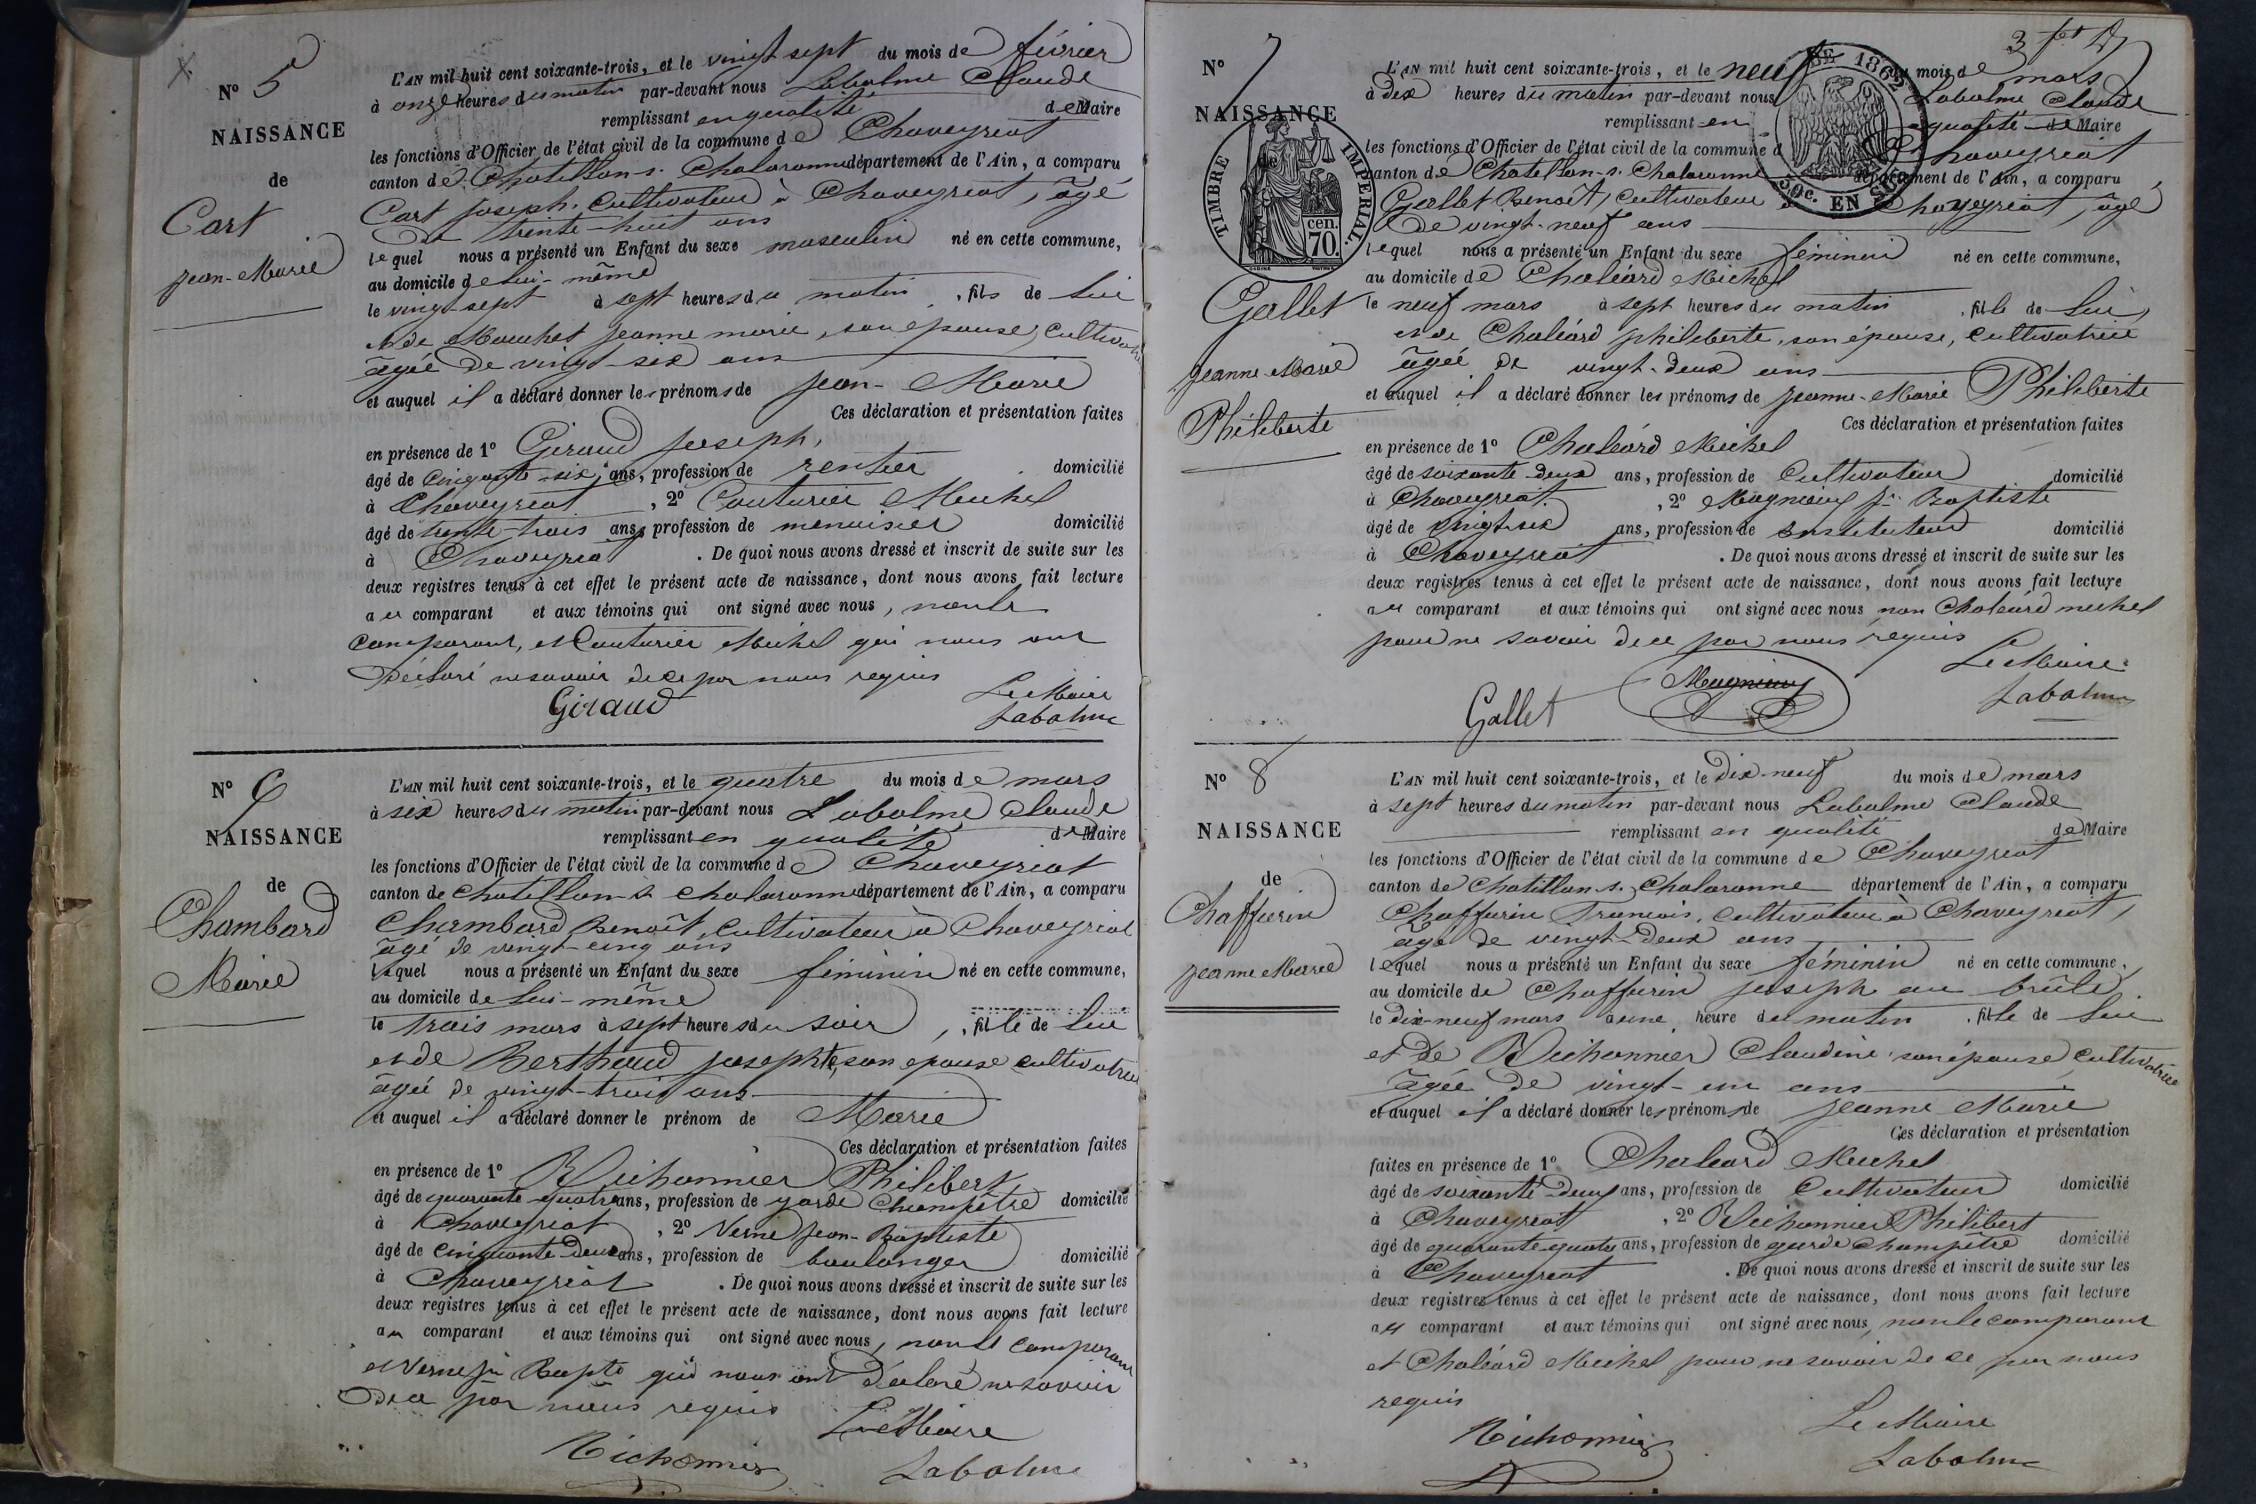 N° 5
NAISSANCE
de
Cart
Jean-Marie
L'AN mil huit cent soixante-trois, et le vingt sept du mois de février
à onze heures du matin par-devant nous Labalme Claude
remplissant en qualité de Maire
les fonctions d'Officier de l'état civil de la commune de Chaveyriat
canton de Chatillon-s-Chalaronne département de l'Ain, a comparu
Cart Joseph, cultivateur à Chaveyriat, âgé
de trente-huit ans
lequel nous a présenté un Enfant du sexe masculin né en cette commune,
au domicile de lui-même
le vingt-sept à sept heures du matin, fils de lui
et de Mouchet Jeanne marie, son épouse, cultivatrice
âgée de vingt-six ans
et auquel il a déclaré donner les prénoms de Jean-Marie
Ces déclaration et présentation faites
en présence de 1° Giraud Joseph,
âgé de cinquante-six ans, profession de rentier domicilié
à Chaveyriat, 2° Couturier Michel
âgé de trente-trois ans, profession de menuisier domicilié
à Chaveyriat. De quoi nous avons dressé et inscrit de suite sur les
deux registres tenus à cet effet le présent acte de naissance, dont nous avons fait lecture
au comparant et aux témoins qui ont signé avec nous, non le
comparant, et Couturier Michel qui nous ont
déclaré ne savoir de ce par nous requis
Giraud
Le Maire
Labalme
N° 6
NAISSANCE
de
Chambard
Marie
L'AN mil huit cent soixante-trois, et le quatre du mois de mars
à six heures du matin par-devant nous Labalme Claude
remplissant en qualité de Maire
les fonctions d'Officier de l'état civil de la commune de Chaveyriat
canton de Chatillon-s-Chalaronne département de l'Ain, a comparu
Chambard Benoît, cultivateur à Chaveyriat
âgé de vingt-cinq ans
lequel nous a présenté un Enfant du sexe féminin né en cette commune,
au domicile de lui-même
le trois mars à sept heures du soir, fille de lui
et de Berthaud Josephte, son épouse cultivatrice
âgée de vingt-trois ans
et auquel il a déclaré donner le prénom de Marie
Ces déclaration et présentation faites
en présence de 1° Richonnier Philibert,
âgé de quarante-quatre ans, profession de garde champêtre domicilié
à Chaveyriat, 2° Verne Jean-Baptiste
âgé de cinquante-deux ans, profession de boulanger domicilié
à Chaveyriat. De quoi nous avons dressé et inscrit de suite sur les
deux registres tenus à cet effet le présent acte de naissance, dont nous avons fait lecture
au comparant et aux témoins qui ont signé avec nous, non le comparant
et Verne Jn Bapte qui nous ont déclaré ne savoir
de ce par nous requis
Le Maire
Richonnier
Labalme
3
N° 7
NAISSANCE
de
Gallet
Jeanne-Marie
Philiberte
TIMBRE IMPERIAL.
cen. 70.
DE 1862
50c. EN SUS
L'AN mil huit cent soixante-trois, et le neuf du mois de mars
à dix heures du matin par-devant nous Labalme Claude
remplissant en qualité de Maire
les fonctions d'Officier de l'état civil de la commune de Chaveyriat
canton de Chatillon-s-Chalaronne département de l'Ain, a comparu
Gallet Benoît, cultivateur à Chaveyriat, âgé
de vingt-neuf ans
lequel nous a présenté un Enfant du sexe féminin né en cette commune,
au domicile de Chaléard Michel
le neuf mars à sept heures du matin, fille de lui,
et de Chaléard philiberte, son épouse, cultivatrice
âgée de vingt-deux ans
et auquel il a déclaré donner les prénoms de Jeanne-Marie Philiberte
Ces déclaration et présentation faites
en présence de 1° Chaléard Michel
âgé de soixante-deux ans, profession de cultivateur domicilié
à Chaveyriat, 2° Magnieny Jn Baptiste
âgé de vingt-six ans, profession de instituteur domicilié
à Chaveyriat. De quoi nous avons dressé et inscrit de suite sur les
deux registres tenus à cet effet le présent acte de naissance, dont nous avons fait lecture
au comparant et aux témoins qui ont signé avec nous non Chaléard michel
pour ne savoir de ce par nous requis
Le Maire
Gallet
Labalme
N° 8
NAISSANCE
de
Chaffurin
Jeanne Marie
L'AN mil huit cent soixante-trois, et le dix-neuf du mois de mars
à sept heures du matin par-devant nous Labalme Claude
remplissant en qualité de Maire
les fonctions d'Officier de l'état civil de la commune de Chaveyriat
canton de Chatillon-s-Chalaronne département de l'Ain, a comparu
Chaffurin Francois, cultivateur à Chaveyriat,
âgé de vingt-deux ans
lequel nous a présenté un Enfant du sexe féminin né en cette commune,
au domicile de Chaffurin Joseph au brûlé
le dix-neuf mars à une heure du matin, fille de lui
et de Richonnier Claudine son épouse, cultivatrice
âgée de vingt-un ans
et auquel il a déclaré donner les prénoms de Jeanne Marie
Ces déclaration et présentation
faites en présence de 1° Chaléard Michel
âgé de soixante-deux ans, profession de cultivateur domicilié
à Chaveyriat, 2° Richonnier Philibert
âgé de quarante-quatre ans, profession de garde champêtre domicilié
à Chaveyriat. De quoi nous avons dressé et inscrit de suite sur les
deux registres tenus à cet effet le présent acte de naissance, dont nous avons fait lecture
au comparant et aux témoins qui ont signé avec nous, non le comparant
et Chaléard Michel pour ne savoir de ce par nous
requis
Richonnier
Le Maire
Labalme